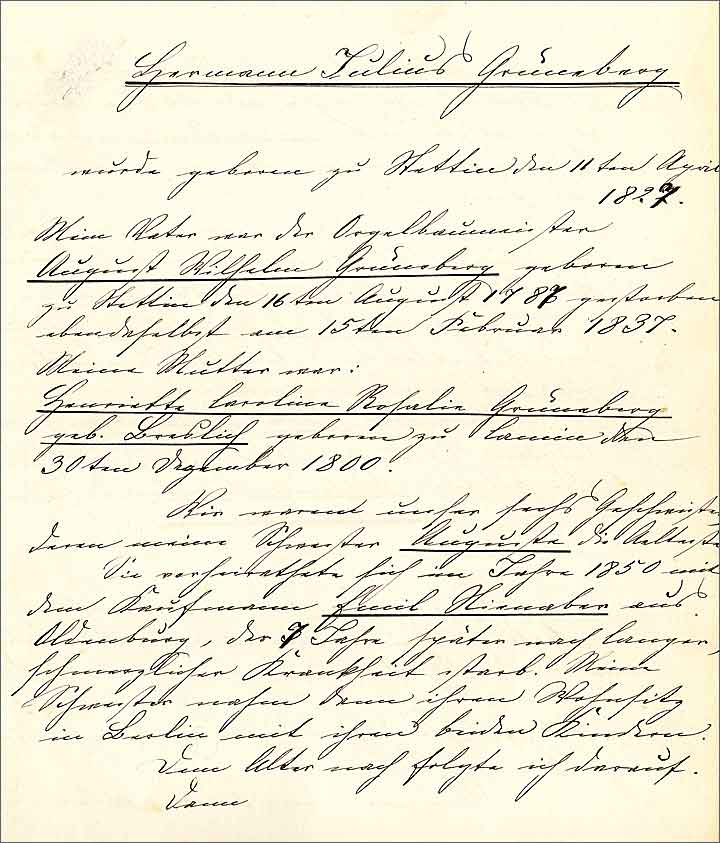 Hermann Julius Grüneberg
wurde geboren zu Stettin den 11 ten April
1827.
Mein Vater war der Orgelbaumeister
August Wilhelm Grüneberg geboren
zu Stettin den 16 ten August 1787 gestorben
ebendaselbst am 15ten Februar 1837.
Meine Mutter war:
Henriette Caroline Rosalie Grüneberg
geb. Breslich geboren zu Camin den
30ten Dezember 1800.
Wir waren unser sechs Geschwister
deren meine Schwester Auguste die Aelteste
Sie verheirathete sich im Jahre 1850 mit
dem Kaufmann Emil Nienaber aus
Oldenburg, der 7 Jahre später nach langer,
schmerzlicher Krankheit starb. Meine
Schwester nahm dann ihren Wohnsitz
in Berlin mit ihren beiden Kindern.
Dem Alter nach folgte ich darauf.
Dann